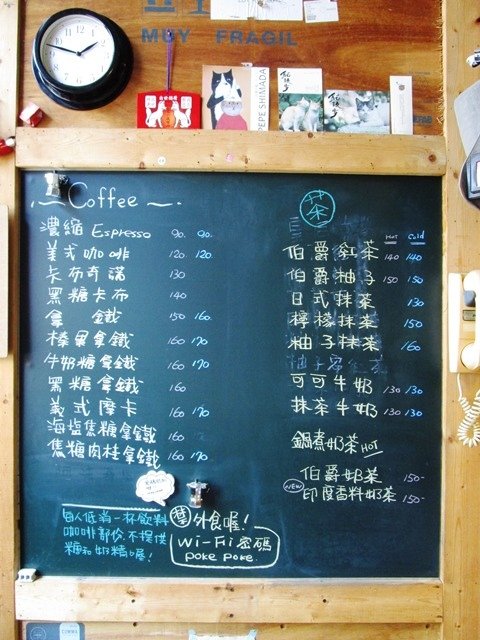 MUY FRAGIL
PEPE SHIMADA
Coffee
濃縮 Espresso 90. 90.
美式咖啡 120. 120.
卡布奇諾 130
黑糖卡布 140
拿鐵 150 160.
榛果拿鐵 160 170
牛奶糖拿鐵 160 170
黑糖拿鐵 160
義式摩卡 160 170
海塩焦糖拿鐵 160 170
焦糖肉桂拿鐵 160 170.
茶
HOT Cold
伯爵紅茶 140 140
伯爵柚子 150 150
日式抹茶 130
檸檬抹茶 150
柚子抹茶 160
可可牛奶 130 130
抹茶牛奶 130 130
鍋煮奶茶 HOT
伯爵奶茶 150-
NEW 印度香料奶茶 150-
每人低消一杯飲料
咖啡部份不提供
糖和奶精喔!
禁外食喔!
Wi-Fi 密碼
poke poke.